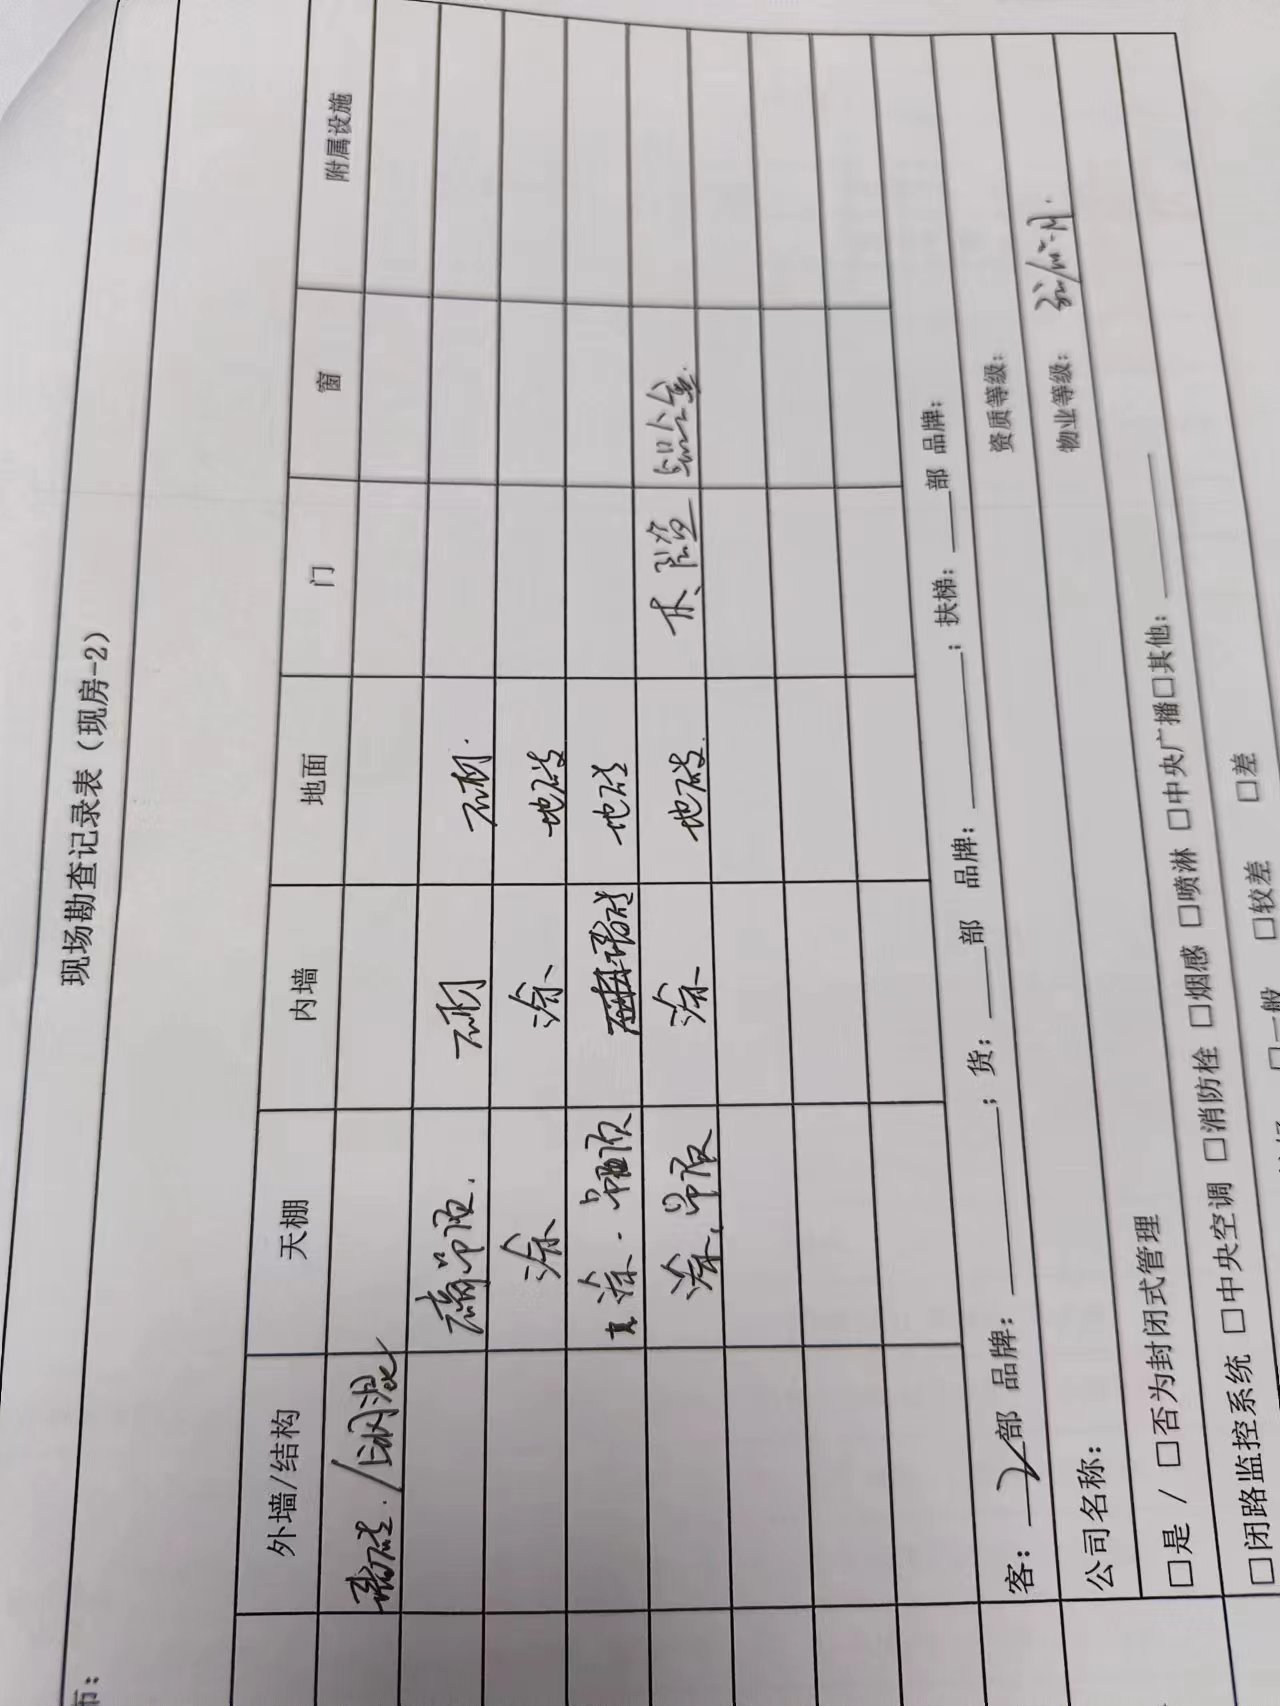 现场勘查记录表（现房-2）
市：
外墙/结构 天棚 内墙 地面 门 窗 附属设施
瓷砖./钢混
石膏吊顶. 石材 石材.
涂 涂 地砖
涂. 吊顶 瓷砖 地砖
涂、吊顶 涂 地砖. 木、防盗 铝合金.
客：2部 品牌：；货：部 品牌：；扶梯：部 品牌：
公司名称： 资质等级：
物业等级： /m²·月.
□是 / □否为封闭式管理
□闭路监控系统 □中央空调 □消防栓 □烟感 □喷淋 □中央广播□其他：
□一般 □较差 □差